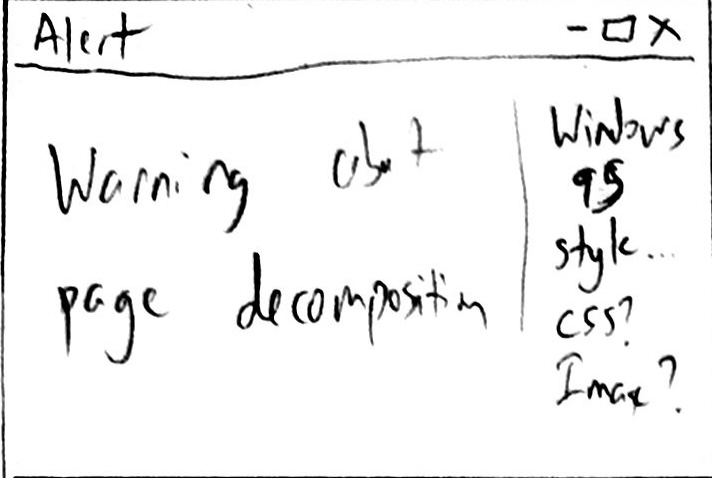 Alert
Warning about
page decomposition
Windows
95
style...
css?
Image?